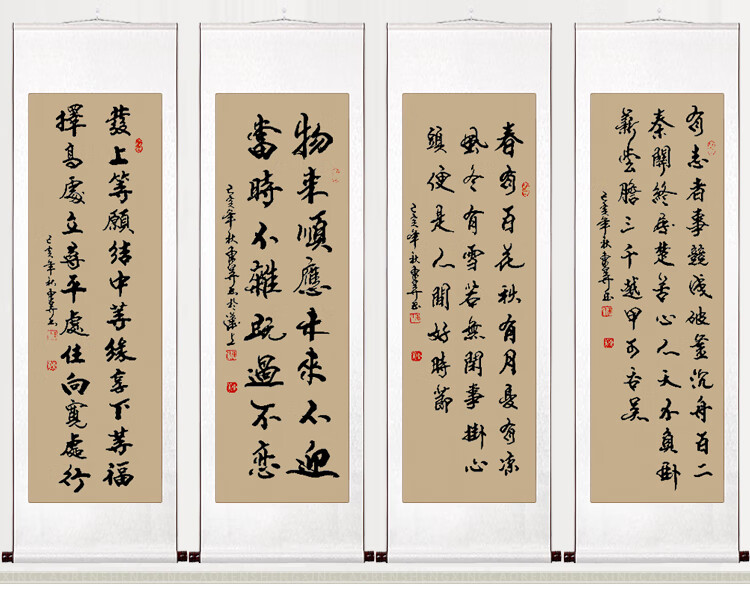 有志者事競成破釜沉舟百二
秦關終屬楚苦心人天不負卧
薪尝膽三千越甲可吞吴
己亥年秋
春有百花秋有月夏有凉
風冬有雪若無閑事掛心
頭便是人間好時節
己亥年秋
物来順應未來不迎
當時不雜既過不恋
己亥年秋
發上等願結中等緣享下等福
擇高處立尋平處住向寬處行
己亥年秋